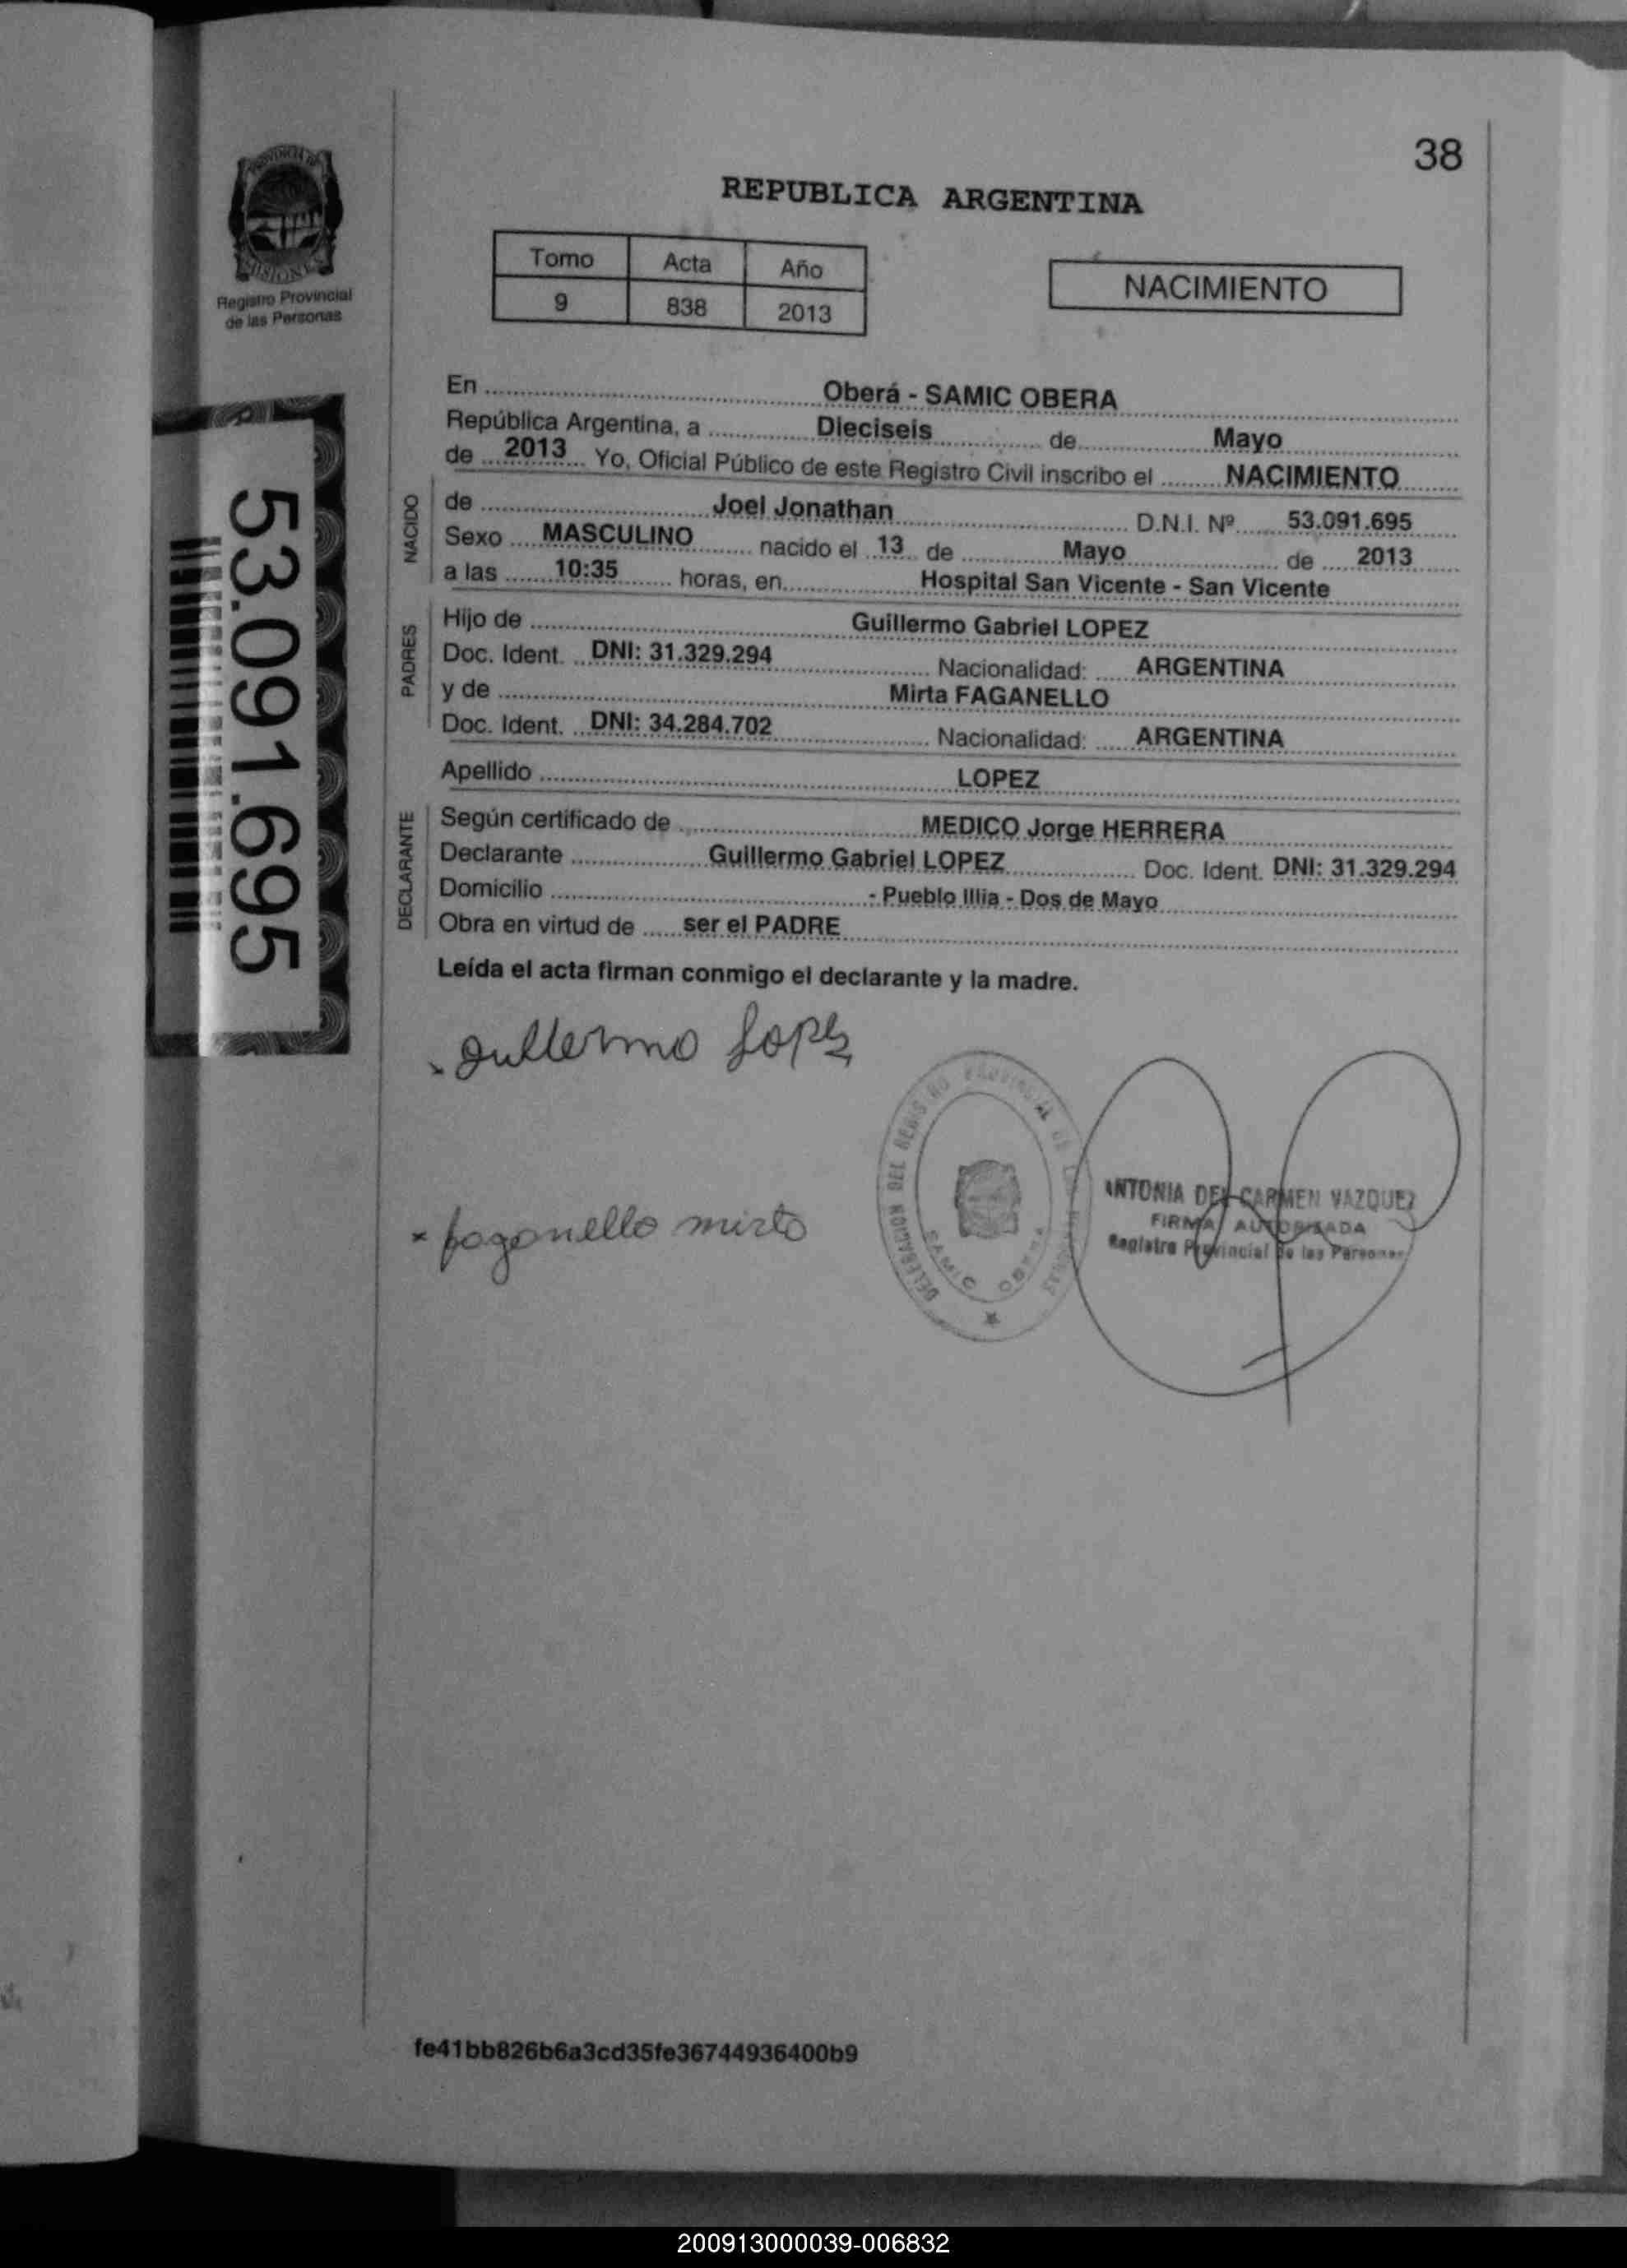 38
PROVINCIA DE
MISIONES
Registro Provincial
de las Personas
REPUBLICA ARGENTINA
Tomo Acta Año
9 838 2013
NACIMIENTO
53.091.695
En Oberá - SAMIC OBERA
República Argentina, a Dieciseis de Mayo
de 2013 Yo, Oficial Público de este Registro Civil inscribo el NACIMIENTO
NACIDO
de Joel Jonathan D.N.I. Nº 53.091.695
Sexo MASCULINO nacido el 13 de Mayo de 2013
a las 10:35 horas, en Hospital San Vicente - San Vicente
PADRES
Hijo de Guillermo Gabriel LOPEZ
Doc. Ident. DNI: 31.329.294 Nacionalidad: ARGENTINA
y de Mirta FAGANELLO
Doc. Ident. DNI: 34.284.702 Nacionalidad: ARGENTINA
Apellido LOPEZ
DECLARANTE
Según certificado de MEDICO Jorge HERRERA
Declarante Guillermo Gabriel LOPEZ Doc. Ident. DNI: 31.329.294
Domicilio - Pueblo Illia - Dos de Mayo
Obra en virtud de ser el PADRE
Leída el acta firman conmigo el declarante y la madre.
Guillermo Lopez
faganello mirta
DELEGACION DEL REGISTRO PROVINCIAL DE LAS PERSONAS
SAMIC OBERA
ANTONIA DEL CARMEN VAZQUEZ
FIRMA AUTORISADA
Registro Provincial de las Personas
fe41bb826b6a3cd35fe36744936400b9
200913000039-006832